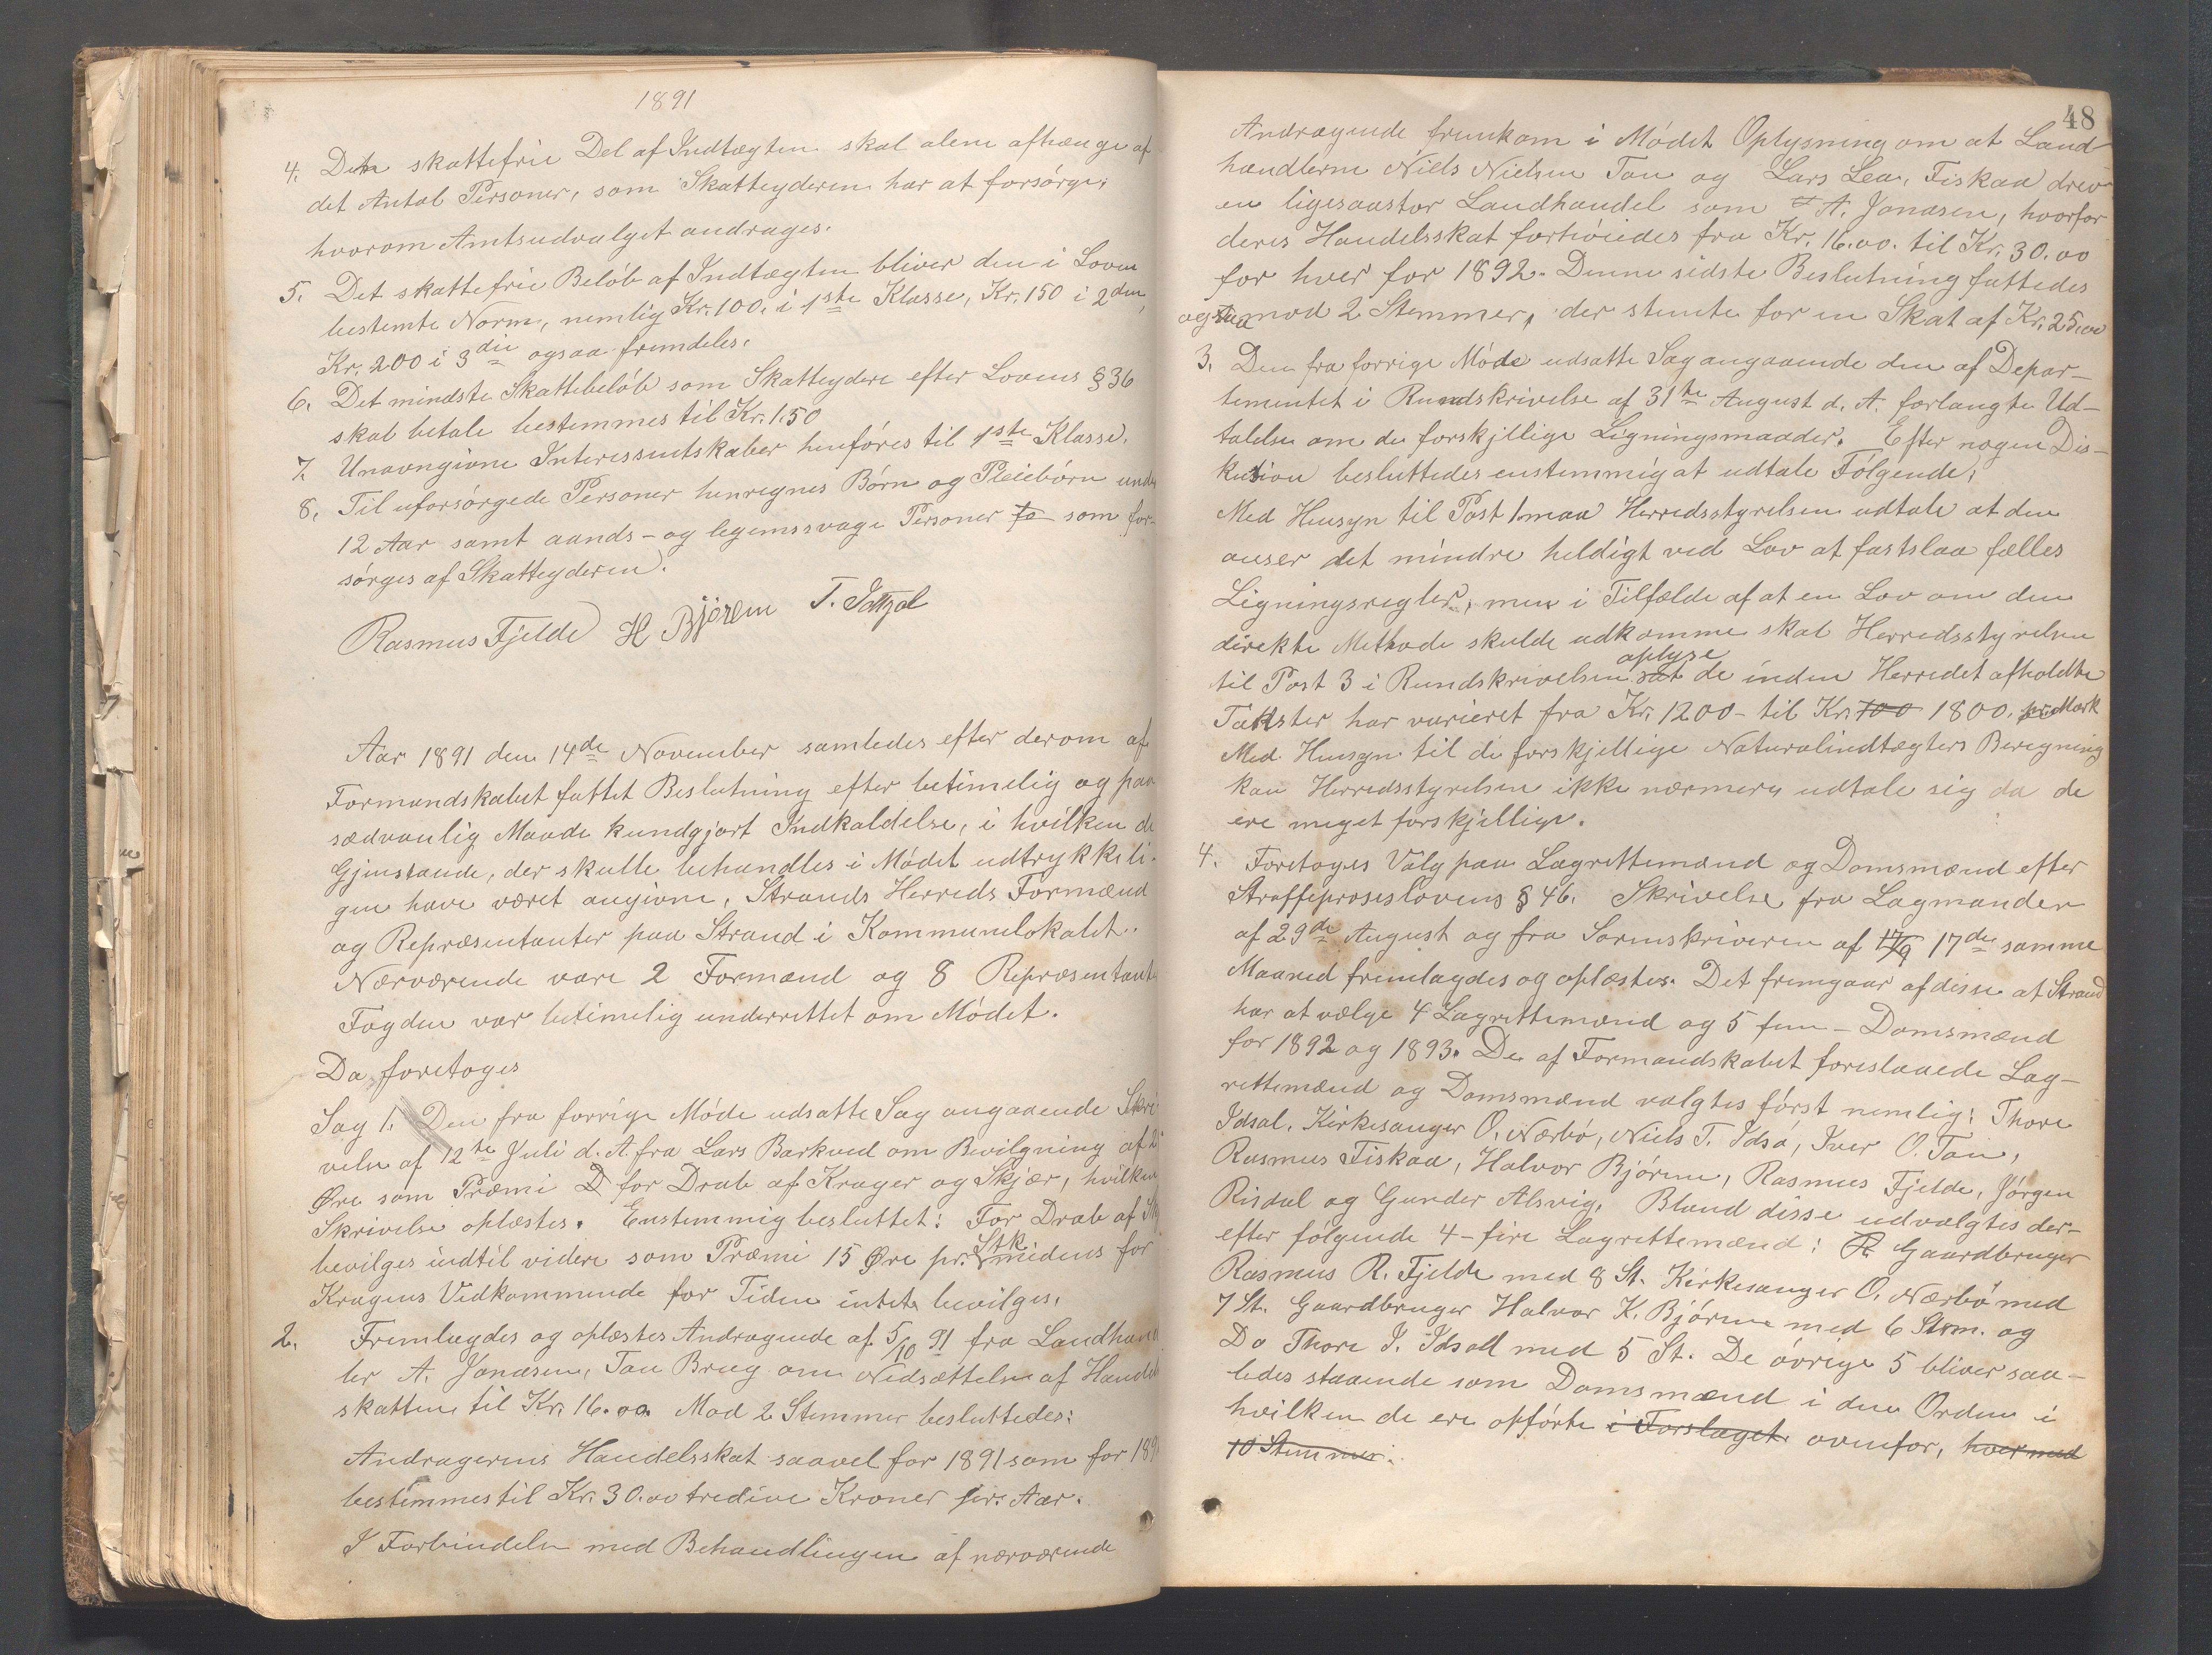 1891
4. Den skattefrie Del af Indtægten skal alene afhænge af
det Antal Personer, som Skatteyderen har at forsørge,
hvorom Amtsudvalget andrages.
5. Det skattefrie Beløb af Indtægten bliver den i Loven
bestemte Norm, nemlig Kr. 100. i 1ste Klasse, Kr. 150 i 2den,
Kr. 200 i 3die ogsaa fremdeles.
6. Det mindste Skattebeløb som Skatteydere efter Lovens § 36
skal betale bestemmes til Kr. 1.50
7. Unavngivne Interessentskaber henføres til 1ste Klasse.
8. Til uforsørgede Personer henregnes Børn og Pleiebørn under
12 Aar samt aands- og legemssvage Personer fo som for-
sørges af Skatteyderen.
Rasmus Fjelde H Bjørem T.
Aar 1891 den 14de November samledes efter derom af
Formandskabet fattet Beslutning efter betimelig og paa
sædvanlig Maade kundgjort Indkaldelse, i hvilken de
Gjenstande, der skulle behandles i Mødet udtrykkeli-
gen have været angivne, Strands Herreds Formænd
og Repræsentanter paa Strand i Kommunelokalet.
Nærværende vare 2 Formænd og 8 Repræsentant
Fogden var betimelig underrettet om Mødet.
Da foretoges
Sag 1. Den fra forrige Møde udsatte Sag angaaende Skri
velse af 12te Juli d. A. fra Lars Barkved om Bevilgning af 2
Øre som Præmi D for Drab af Krager og Skjær, hvilken
Skrivelse oplæstes. Enstemmig besluttet: For Drab af
bevilges indtil videre som Præmi 15 Øre pr. Stk. midens for
Kragens Vidkommende for Tiden intet bevilges.
2. Fremlagdes og oplæstes Andragende af 5/10 91 fra Landhand
ler A. Jonasen, Tau Brug om Nedsættelse af Handels
skatten til Kr. 16.00. Mod 2 Stemmer besluttedes:
Andragerens Handelsskat saavel for 1891 som for 189
bestemmes til Kr. 30.00 tredive Kroner pr. Aar.
I Forbindelse med Behandlingen af nærværende
48
Andragende fremkom i Mødet Oplysning om at Land-
handlerne Niels Nielsen Tau og Lars Lea, Fiskaa drev
en ligesaastor Landhandel som A. Jonasen, hvorfor
deres Handelsskat forhøiedes fra Kr. 16.00. til Kr. 30.00
for hver for 1892. Denne sidste Beslutning fattedes
ogsaa mod 2 Stemmer, der stemte for en Skat af Kr. 25.00
3. Den fra forrige Møde udsatte Sag angaaende den af Depar-
tementet i Rundskrivelse af 31te August d. A. forlangte Ud-
talelse om de forskjellige Ligningsmaader. Efter nogen Dis-
kusion besluttedes enstemmig at udtale Følgende:
Med Hensyn til Post 1. maa Herredsstyrelsen udtale at den
anser det mindre heldigt ved Lov at fastslaa fælles
Ligningsregler, men i Tilfælde af at en Lov om den
direkte Methode skulde udkomme skal Herredsstyrelsen
til Post 3 i Rundskrivelsen oplyse at de inden Herredet afholdte
Taxster har varieret fra Kr. 1200- til Kr. 700 1800. pr. Mark
Med Hensyn til de forskjellige Naturalindtægters Beregning
kan Herredsstyrelsen ikke nærmere udtale sig da de
ere meget forskjellige.
4. Foretoges Valg paa Lagrettemænd og Domsmænd efter
Straffeproseslovens § 46. Skrivelse fra Lagmanden
af 29de August og fra Sorenskriveren af 17/9 17de samme
Maaned fremlagdes og oplæstes. Det fremgaar af disse at Strand
har at vælge 4 Lagrettemænd og 5 fem - Domsmænd
for 1892 og 1893. De af Formandskabet foreslaaede Lag-
rettemænd og Domsmænd valgtes først nemlig: Thore
Idsal, Kirkesanger O. Nærbø, Niels T. Idsø, Iver O. Tau,
Rasmus Fiskaa, Halvor Bjørem, Rasmus Fjelde, Jørgen
Risdal og Gunder Alsvig. Bland disse udvalgtes der-
efter følgende 4-fire Lagrettemænd: R Gaardbruger
Rasmus R. Fjelde med 8 St. Kirkesanger O. Nærbø med
7 St. Gaardbruger Halvor K. Bjørem med 6 Stem. og
Do Thore I. Idsal med 5 St. De øvrige 5 bliver saa-
ledes staaende som Domsmænd i den Orden i
hvilken de ere opførte i Forslaget ovenfor, hver med
10 Stemmer.